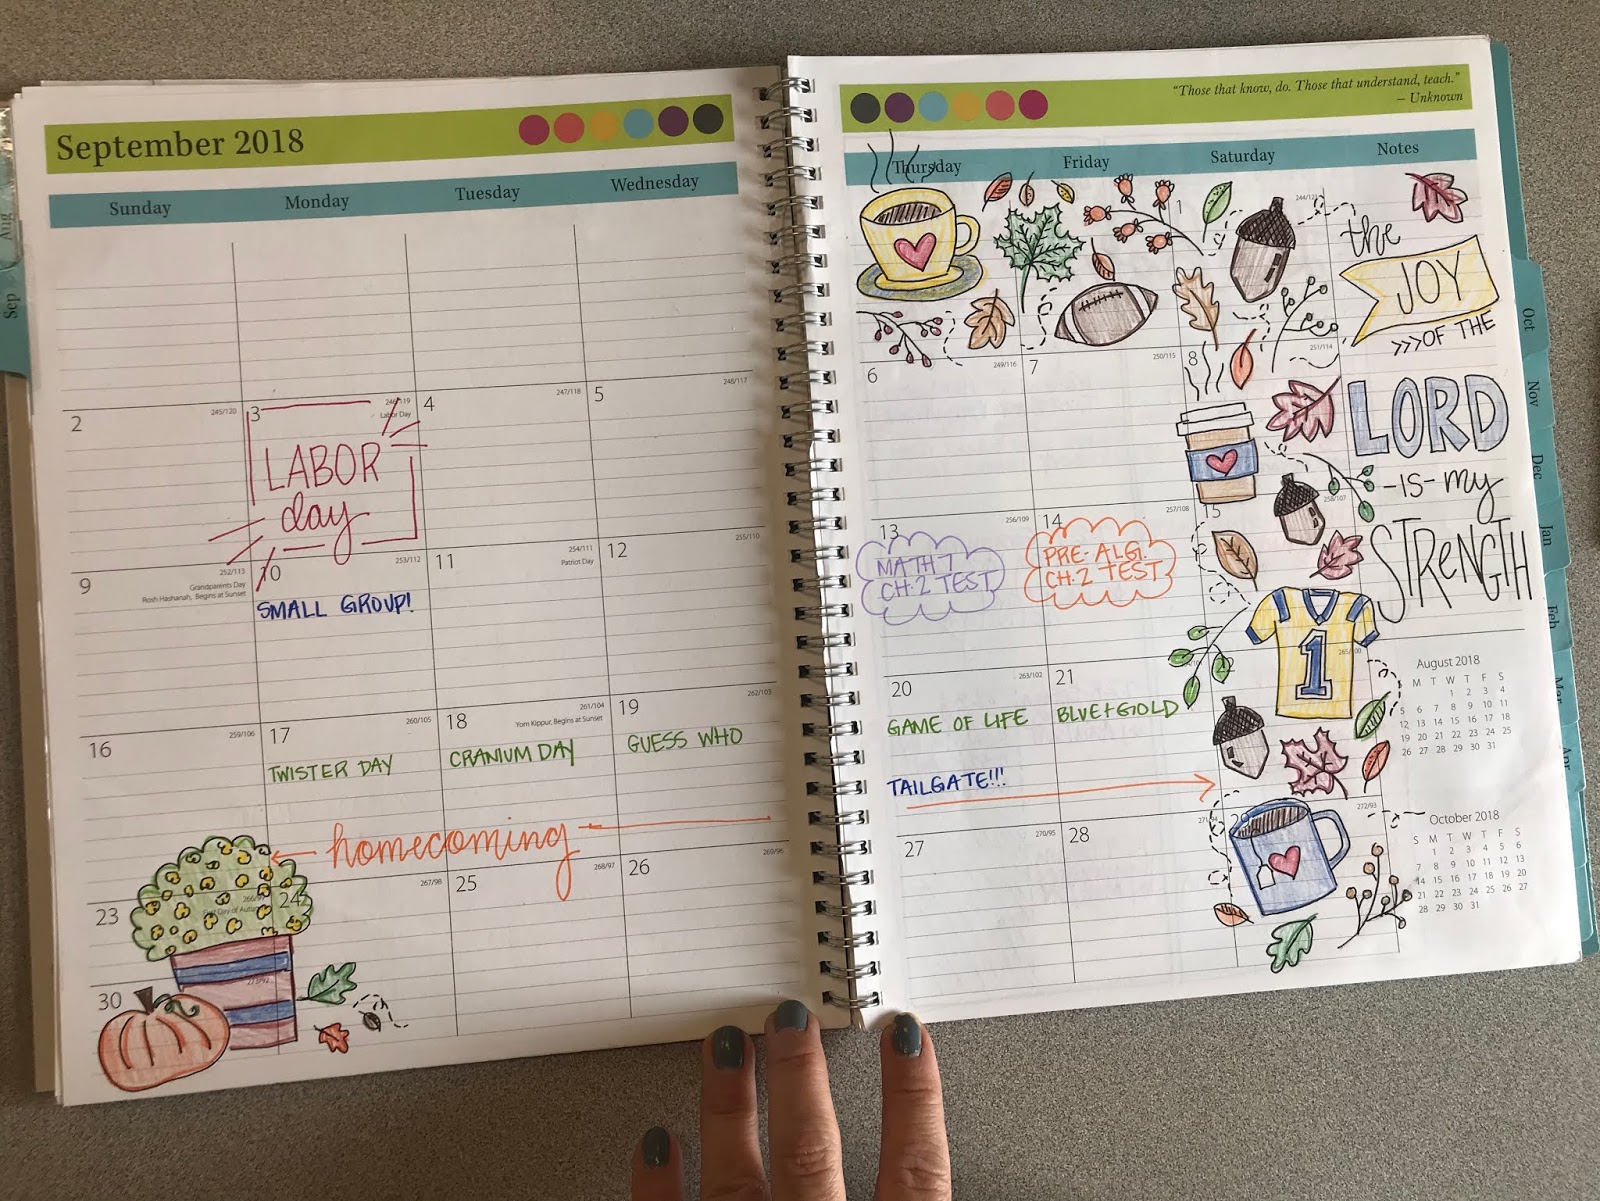 September 2018
Sunday Monday Tuesday Wednesday
2 245/120
3 246/119
Labor Day
LABOR
day
4 247/118
5 248/117
9 252/113
Grandparents Day
Rosh Hashanah, Begins at Sunset
10 253/112
SMALL GROUP!
11 254/111
Patriot Day
12 255/110
16 259/106
17 260/105
TWISTER DAY
18 261/104
Yom Kippur, Begins at Sunset
CRANIUM DAY
19 262/103
GUESS WHO
homecoming
23 266/99
24 267/98
25 268/97
26 269/96
30 273/92
"Those that know, do. Those that understand, teach."
— Unknown
Thursday Friday Saturday Notes
1 244/121
6 249/116
7 250/115
8 251/114
13 256/109
MATH 7
CH.2 TEST
14 257/108
PRE-ALG.
CH.2 TEST
15 258/107
20 263/102
GAME OF LIFE
TAILGATE!!!
21
BLUE+GOLD
22 265/100
27 270/95
28 271/94
29 272/93
1
the
JOY
>>>OF THE
LORD
-IS- my
STRENGTH
August 2018
S M T W T F S
1 2 3 4
5 6 7 8 9 10 11
12 13 14 15 16 17 18
19 20 21 22 23 24 25
26 27 28 29 30 31
October 2018
S M T W T F S
1 2 3 4 5 6
7 8 9 10 11 12 13
14 15 16 17 18 19 20
21 22 23 24 25 26 27
28 29 30 31
Aug
Sep
Oct
Nov
Dec
Jan
Feb
Mar
Apr